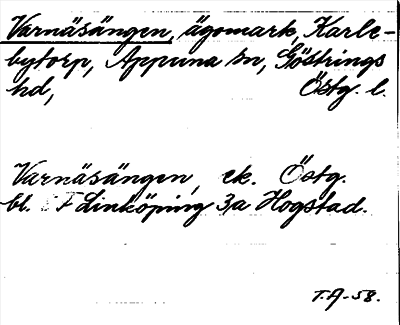 Varnäsängen, ägomark, Karle-
bytorp, Appuna sn, Göstrings
hd, Östg. l.
Varnäsängen, ek. Östg.
bl. F Linköping 3a Hogstad.
T.A-58.